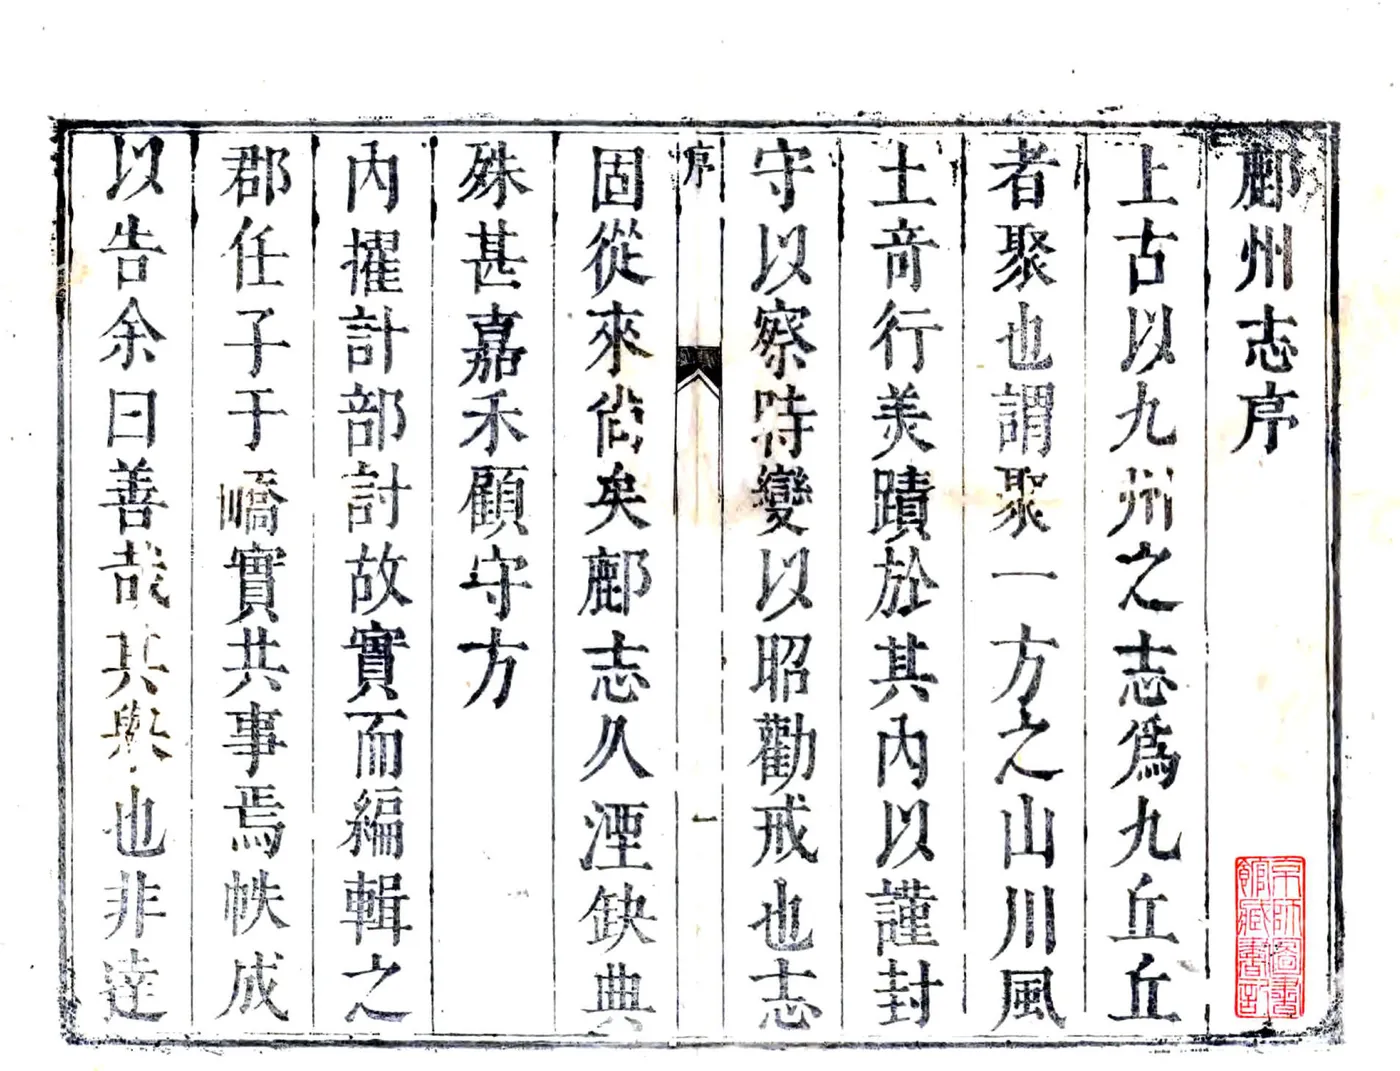 鄜州志序
上古以九州之志爲九丘丘
者聚也謂聚一方之山川風
土竒行美蹟於其內以謹封
守以察時變以昭勸戒也志
序
一
固從來尙矣鄜志久湮缺典
殊甚嘉禾顧守方
內擢計部討故實而編輯之
郡任子于嶠實共事焉帙成
以告余曰善哉其舉也非達
京師圖書
館藏書記